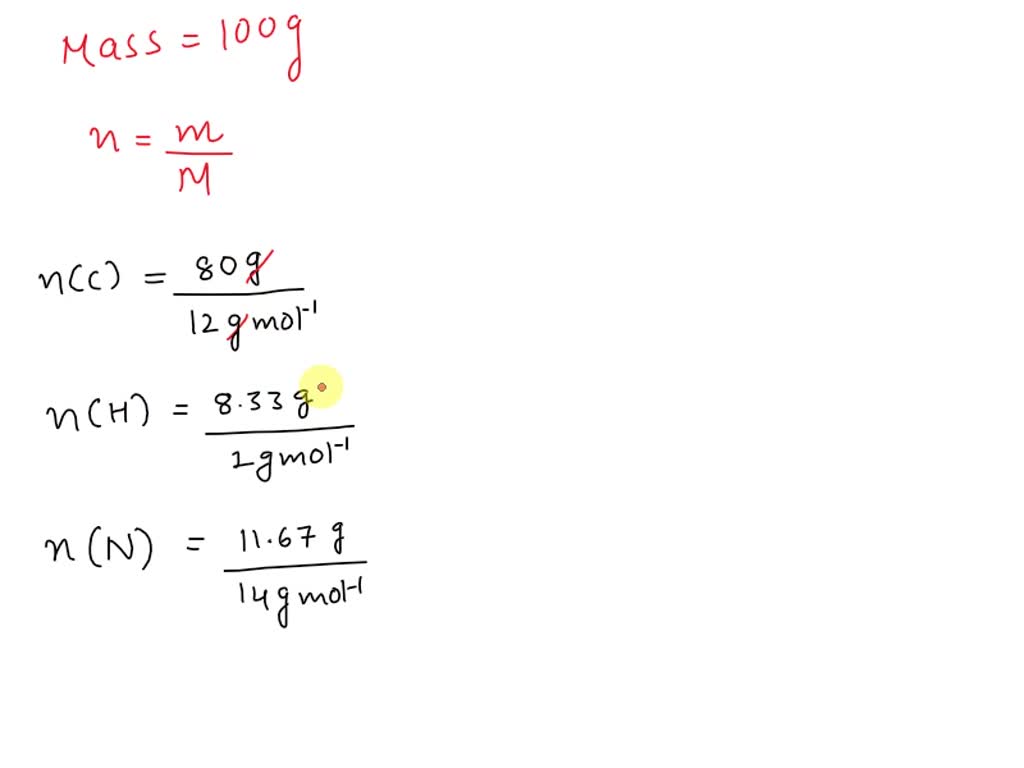 Mass = 100g
n = m/M
n(C) = 80g/12gmol⁻¹
n(H) = 8.33g/1gmol⁻¹
n(N) = 11.67g/14gmol⁻¹